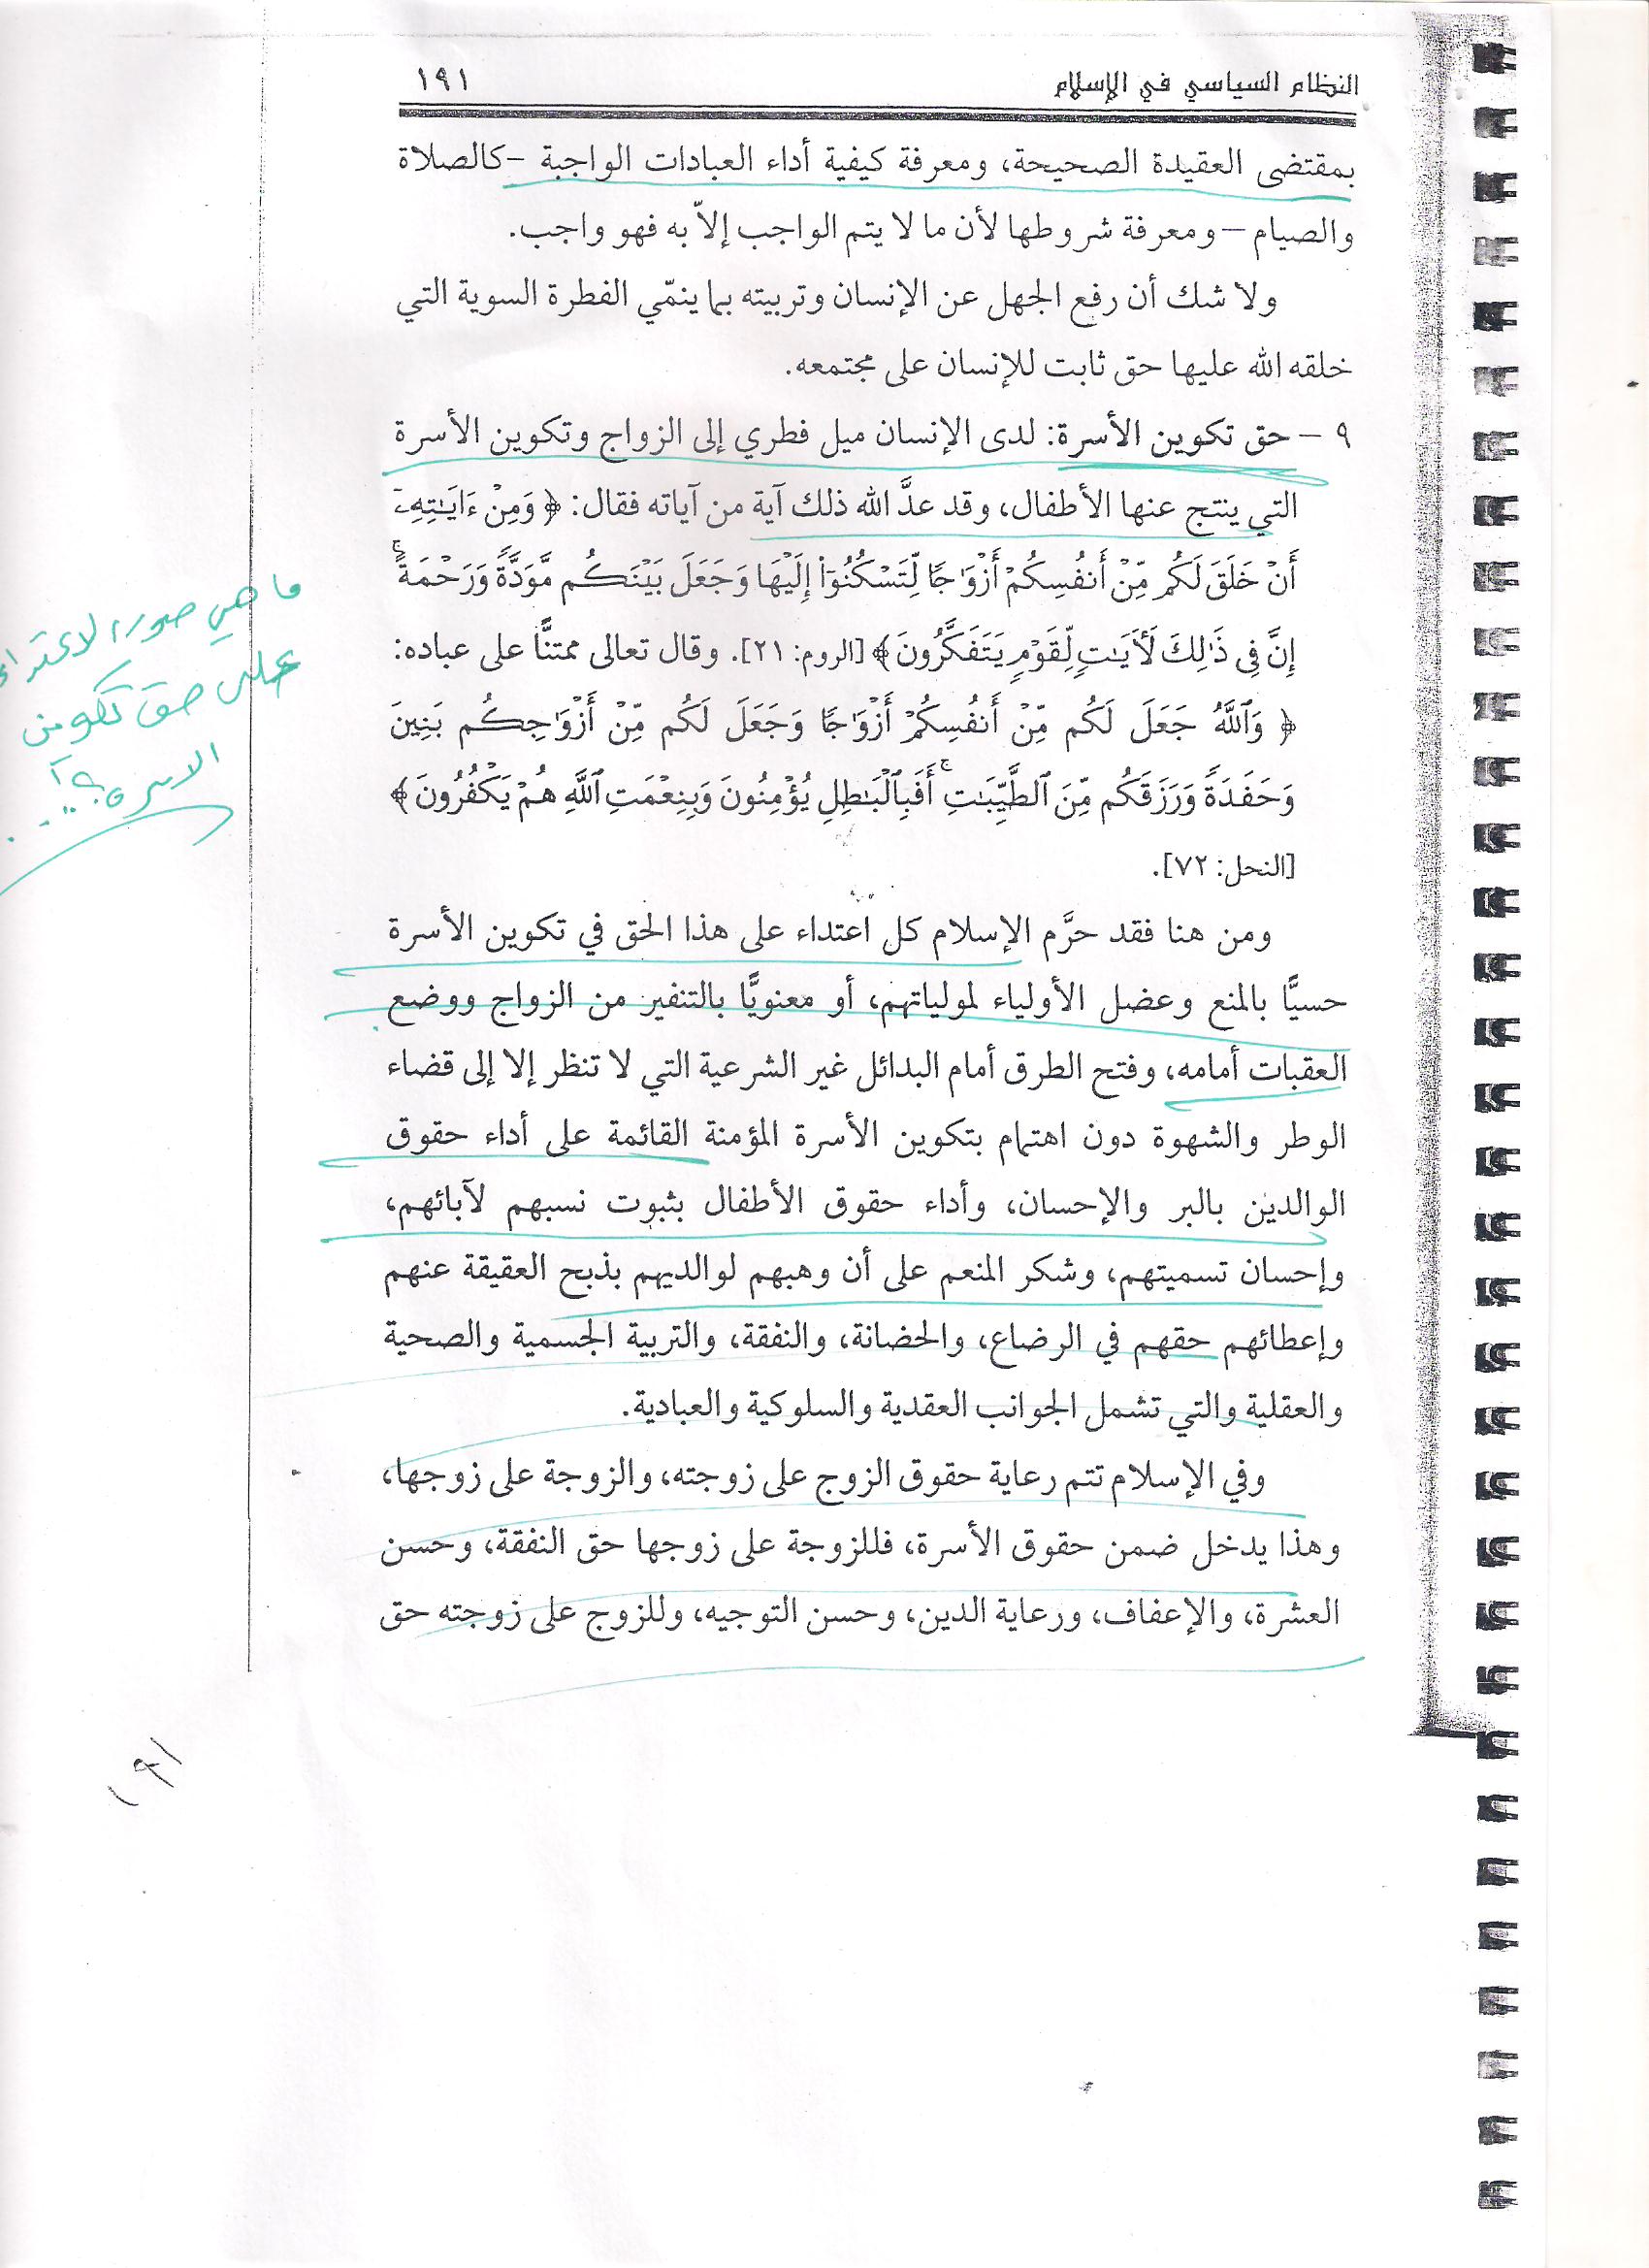 النظام السياسي في الإسلام ١٩١
بمقتضى العقيدة الصحيحة، ومعرفة كيفية أداء العبادات الواجبة -كالصلاة
والصيام- ومعرفة شروطها لأن ما لا يتم الواجب إلاّ به فهو واجب.
ولا شك أن رفع الجهل عن الإنسان وتربيته بما ينمّي الفطرة السوية التي
خلقه الله عليها حق ثابت للإنسان على مجتمعه.
٩ - حق تكوين الأسرة: لدى الإنسان ميل فطري إلى الزواج وتكوين الأسرة
التي ينتج عنها الأطفال، وقد عدَّ الله ذلك آية من آياته فقال: ﴿ وَمِنْ ءَايَـٰتِهِۦٓ
أَنْ خَلَقَ لَكُم مِّنْ أَنفُسِكُمْ أَزْوَٰجًا لِّتَسْكُنُوٓا۟ إِلَيْهَا وَجَعَلَ بَيْنَكُم مَّوَدَّةً وَرَحْمَةً ۚ
إِنَّ فِى ذَٰلِكَ لَـَٔايَـٰتٍ لِّقَوْمٍ يَتَفَكَّرُونَ ﴾ [الروم: ٢١]. وقال تعالى ممتنًّا على عباده:
﴿ وَٱللَّهُ جَعَلَ لَكُم مِّنْ أَنفُسِكُمْ أَزْوَٰجًا وَجَعَلَ لَكُم مِّنْ أَزْوَٰجِكُم بَنِينَ
وَحَفَدَةً وَرَزَقَكُم مِّنَ ٱلطَّيِّبَـٰتِ ۚ أَفَبِٱلْبَـٰطِلِ يُؤْمِنُونَ وَبِنِعْمَتِ ٱللَّهِ هُمْ يَكْفُرُونَ ﴾
[النحل: ٧٢].
ومن هنا فقد حرَّم الإسلام كل اعتداء على هذا الحق في تكوين الأسرة
حسيًّا بالمنع وعضل الأولياء لمولياتهم، أو معنويًّا بالتنفير من الزواج ووضع
العقبات أمامه، وفتح الطرق أمام البدائل غير الشرعية التي لا تنظر إلا إلى قضاء
الوطر والشهوة دون اهتمام بتكوين الأسرة المؤمنة القائمة على أداء حقوق
الوالدين بالبر والإحسان، وأداء حقوق الأطفال بثبوت نسبهم لآبائهم،
وإحسان تسميتهم، وشكر المنعم على أن وهبهم لوالديهم بذبح العقيقة عنهم
وإعطائهم حقهم في الرضاع، والحضانة، والنفقة، والتربية الجسمية والصحية
والعقلية والتي تشمل الجوانب العقدية والسلوكية والعبادية.
وفي الإسلام تتم رعاية حقوق الزوج على زوجته، والزوجة على زوجها،
وهذا يدخل ضمن حقوق الأسرة، فللزوجة على زوجها حق النفقة، وحسن
العشرة، والإعفاف، ورعاية الدين، وحسن التوجيه، وللزوج على زوجته حق
ما هي صور الاعتداء
على حق تكوين
الاسرة؟!
١٩١